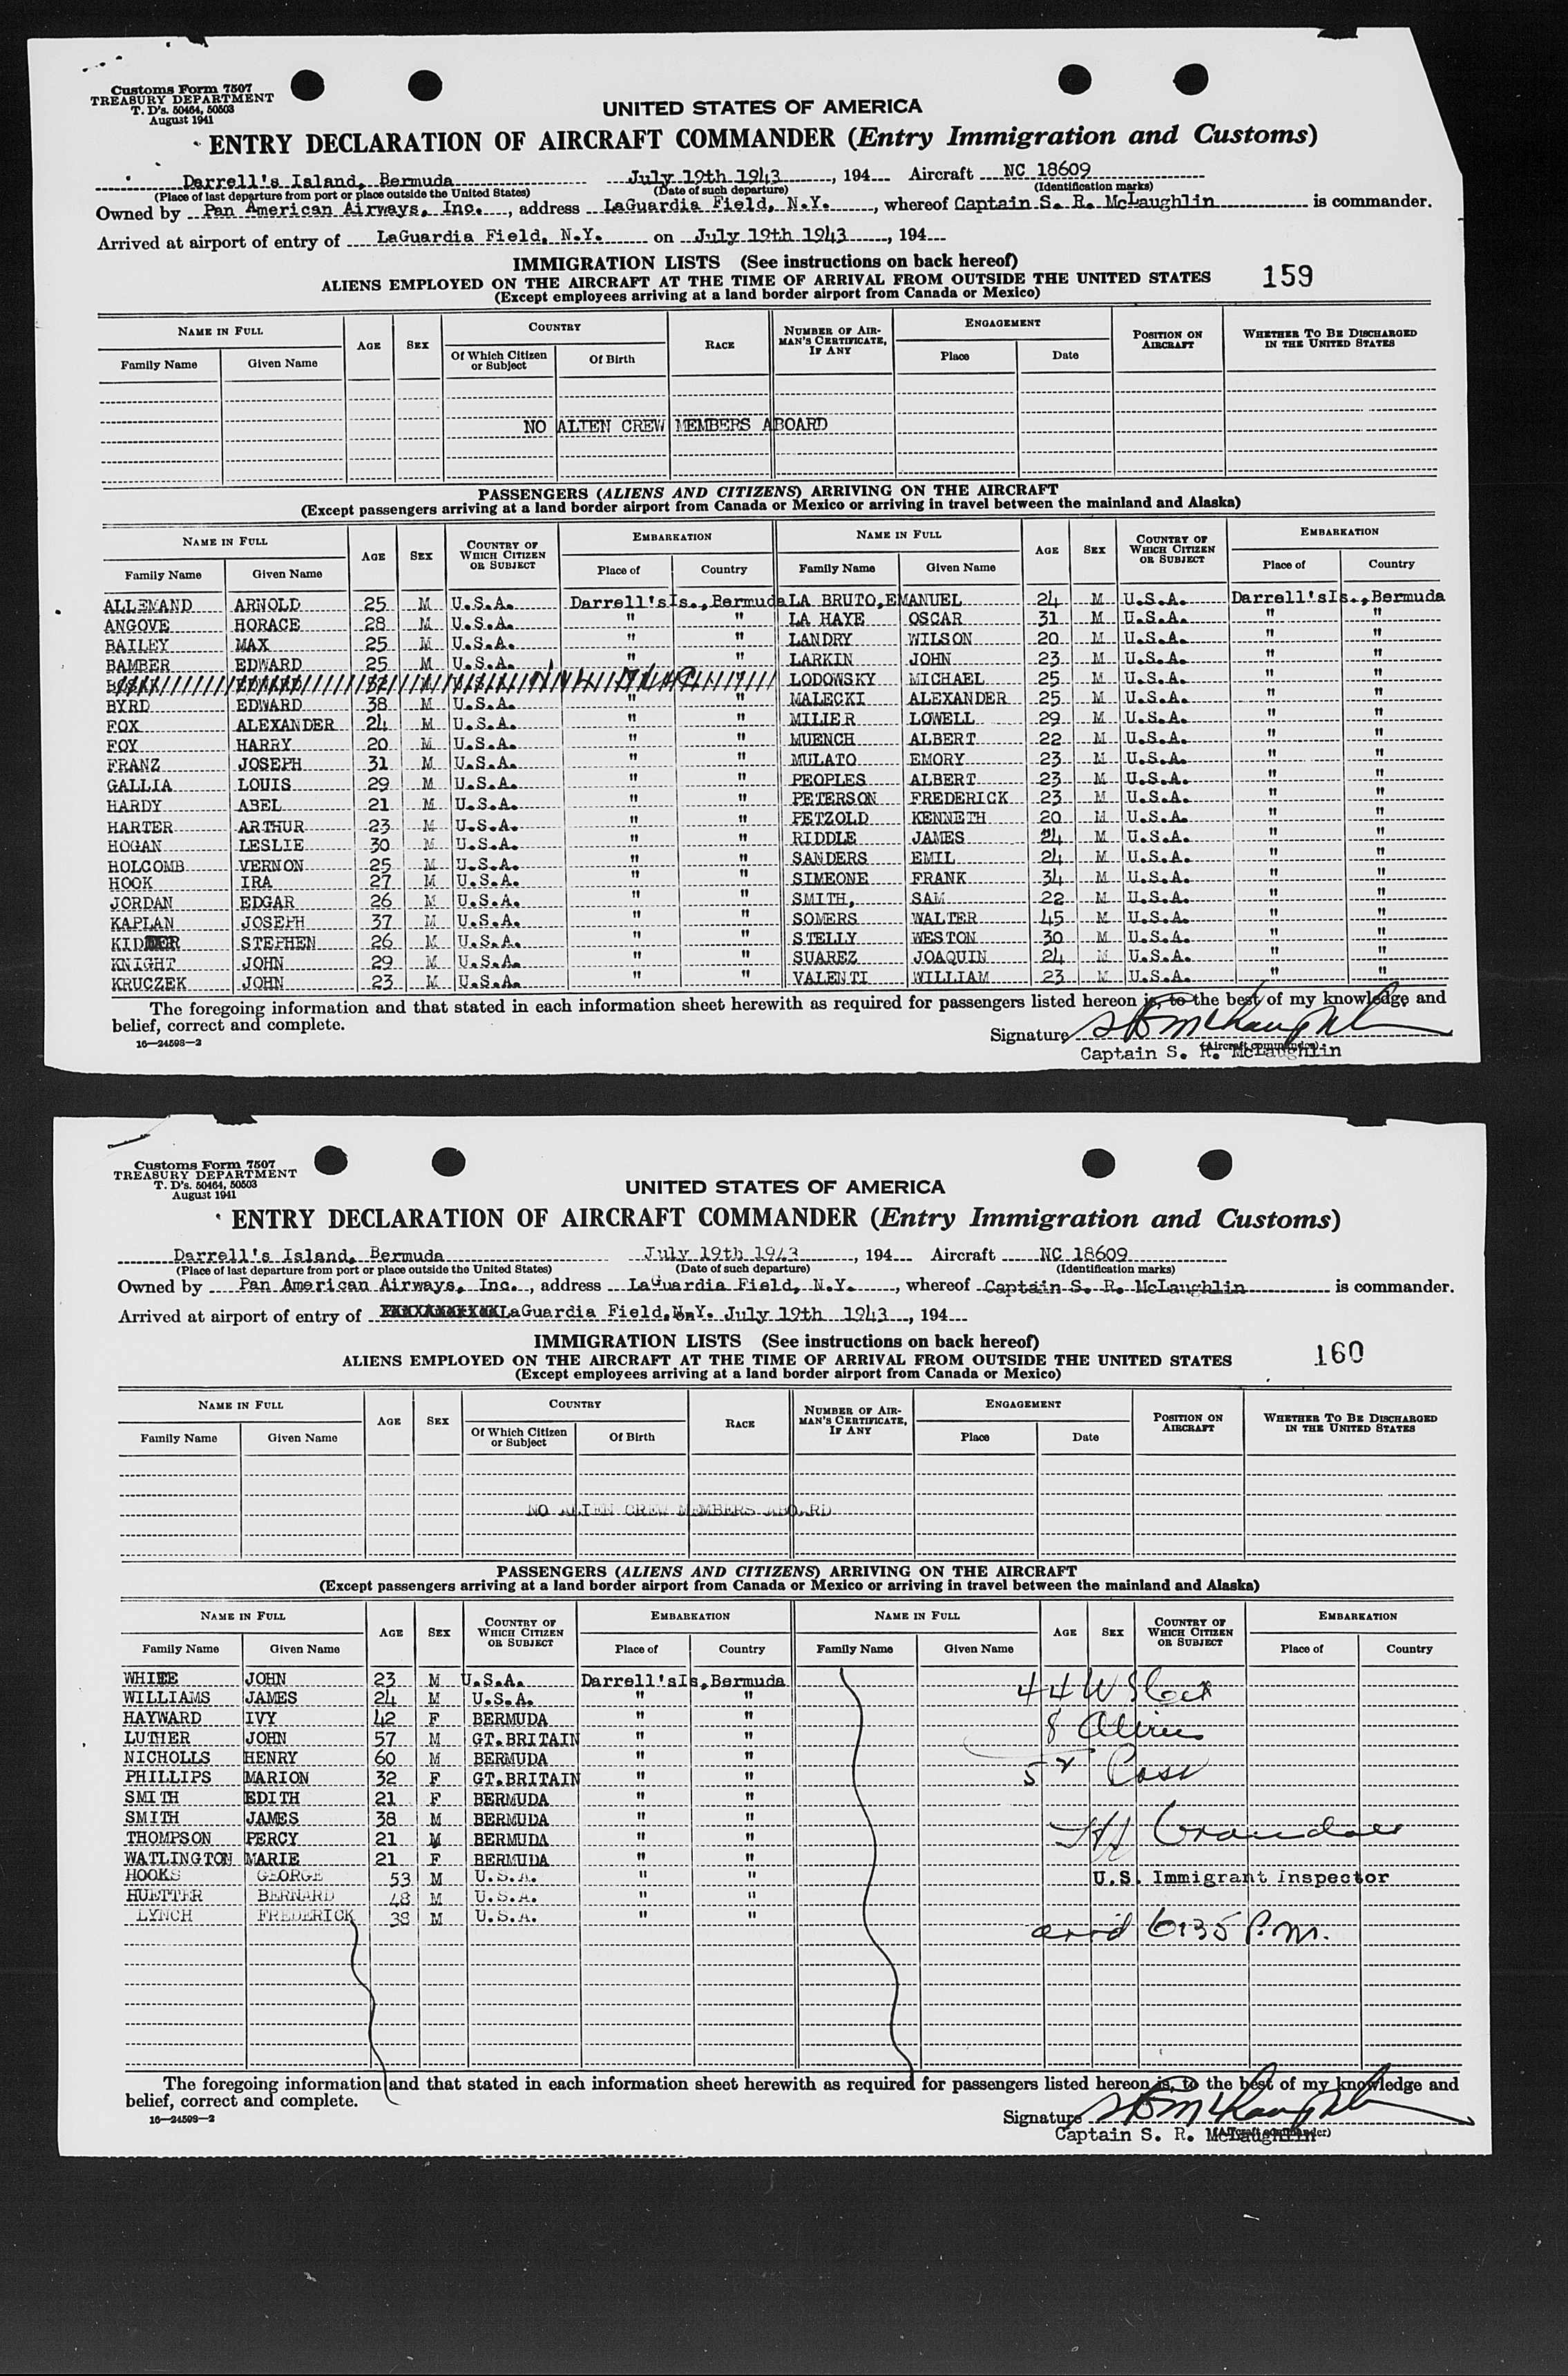 Customs Form 7507
TREASURY DEPARTMENT
T. D's. 50464, 50503
August 1941
UNITED STATES OF AMERICA
ENTRY DECLARATION OF AIRCRAFT COMMANDER (Entry Immigration and Customs)
Darrell's Island, Bermuda July 19th 1943, 194 Aircraft NC 18609
(Place of last departure from port or place outside the United States) (Date of such departure) (Identification marks)
Owned by Pan American Airways, Inc., address LaGuardia Field, N.Y., whereof Captain S. R. McLaughlin is commander.
Arrived at airport of entry of LaGuardia Field, N.Y. on July 19th 1943, 194
IMMIGRATION LISTS (See instructions on back hereof)
ALIENS EMPLOYED ON THE AIRCRAFT AT THE TIME OF ARRIVAL FROM OUTSIDE THE UNITED STATES 159
(Except employees arriving at a land border airport from Canada or Mexico)
NAME IN FULL AGE SEX COUNTRY RACE NUMBER OF AIRMAN'S CERTIFICATE, IF ANY ENGAGEMENT POSITION ON AIRCRAFT WHETHER TO BE DISCHARGED IN THE UNITED STATES
Family Name Given Name Of Which Citizen or Subject Of Birth Place Date
NO ALIEN CREW MEMBERS ABOARD
PASSENGERS (ALIENS AND CITIZENS) ARRIVING ON THE AIRCRAFT
(Except passengers arriving at a land border airport from Canada or Mexico or arriving in travel between the mainland and Alaska)
NAME IN FULL AGE SEX COUNTRY OF WHICH CITIZEN OR SUBJECT EMBARKATION NAME IN FULL AGE SEX COUNTRY OF WHICH CITIZEN OR SUBJECT EMBARKATION
Family Name Given Name Place of Country Family Name Given Name Place of Country
ALLEMAND ARNOLD 25 M U.S.A. Darrell'sIs.,Bermuda LA BRUTO,EMANUEL 24 M U.S.A. Darrell'sIs.,Bermuda
ANGOVE HORACE 28 M U.S.A. " " LA HAYE OSCAR 31 M U.S.A. " "
BAILEY MAX 25 M U.S.A. " " LANDRY WILSON 20 M U.S.A. " "
BAMBER EDWARD 25 M U.S.A. " " LARKIN JOHN 23 M U.S.A. " "
EDWARD LODOWSKY MICHAEL 25 M U.S.A. " "
BYRD EDWARD 38 M U.S.A. " " MALECKI ALEXANDER 25 M U.S.A. " "
FOX ALEXANDER 24 M U.S.A. " " MILIER LOWELL 29 M U.S.A. " "
FOY HARRY 20 M U.S.A. " " MUENCH ALBERT 22 M U.S.A. " "
FRANZ JOSEPH 31 M U.S.A. " " MULATO EMORY 23 M U.S.A. " "
GALLIA LOUIS 29 M U.S.A. " " PEOPLES ALBERT 23 M U.S.A. " "
HARDY ABEL 21 M U.S.A. " " PETERSON FREDERICK 23 M U.S.A. " "
HARTER ARTHUR 23 M U.S.A. " " PETZOLD KENNETH 20 M U.S.A. " "
HOGAN LESLIE 30 M U.S.A. " " RIDDLE JAMES 24 M U.S.A. " "
HOLCOMB VERNON 25 M U.S.A. " " SANDERS EMIL 24 M U.S.A. " "
HOOK IRA 27 M U.S.A. " " SIMEONE FRANK 34 M U.S.A. " "
JORDAN EDGAR 26 M U.S.A. " " SMITH, SAM 22 M U.S.A. " "
KAPLAN JOSEPH 37 M U.S.A. " " SOMERS WALTER 45 M U.S.A. " "
KIDDER STEPHEN 26 M U.S.A. " " STELLY WESTON 30 M U.S.A. " "
KNIGHT JOHN 29 M U.S.A. " " SUAREZ JOAQUIN 24 M U.S.A. " "
KRUCZEK JOHN 23 M U.S.A. " " VALENTI WILLIAM 23 M U.S.A. " "
The foregoing information and that stated in each information sheet herewith as required for passengers listed hereon is, to the best of my knowledge and
belief, correct and complete.
16—24598—2
Signature S R McLaughlin
(Aircraft commander)
Captain S. R. McLaughlin
Customs Form 7507
TREASURY DEPARTMENT
T. D's. 50464, 50503
August 1941
UNITED STATES OF AMERICA
ENTRY DECLARATION OF AIRCRAFT COMMANDER (Entry Immigration and Customs)
Darrell's Island, Bermuda July 19th 1943, 194 Aircraft NC 18609
(Place of last departure from port or place outside the United States) (Date of such departure) (Identification marks)
Owned by Pan American Airways, Inc., address LaGuardia Field, N.Y., whereof Captain S. R. McLaughlin is commander.
Arrived at airport of entry of LaGuardia Field, N.Y. July 19th 1943, 194
IMMIGRATION LISTS (See instructions on back hereof)
ALIENS EMPLOYED ON THE AIRCRAFT AT THE TIME OF ARRIVAL FROM OUTSIDE THE UNITED STATES 160
(Except employees arriving at a land border airport from Canada or Mexico)
NAME IN FULL AGE SEX COUNTRY RACE NUMBER OF AIRMAN'S CERTIFICATE, IF ANY ENGAGEMENT POSITION ON AIRCRAFT WHETHER TO BE DISCHARGED IN THE UNITED STATES
Family Name Given Name Of Which Citizen or Subject Of Birth Place Date
NO ALIEN CREW MEMBERS ABOARD
PASSENGERS (ALIENS AND CITIZENS) ARRIVING ON THE AIRCRAFT
(Except passengers arriving at a land border airport from Canada or Mexico or arriving in travel between the mainland and Alaska)
NAME IN FULL AGE SEX COUNTRY OF WHICH CITIZEN OR SUBJECT EMBARKATION NAME IN FULL AGE SEX COUNTRY OF WHICH CITIZEN OR SUBJECT EMBARKATION
Family Name Given Name Place of Country Family Name Given Name Place of Country
JOHN 23 M U.S.A. Darrell'sIs,Bermuda
WILLIAMS JAMES 24 M U.S.A. " " 44
HAYWARD IVY 42 F BERMUDA " "
LUTHER JOHN 57 M GT.BRITAIN " " 8 Aliens
NICHOLLS HENRY 60 M BERMUDA " "
PHILLIPS MARION 32 F GT.BRITAIN " " Pass
SMITH EDITH 21 F BERMUDA " "
SMITH JAMES 38 M BERMUDA " "
THOMPSON PERCY 21 M BERMUDA " "
WATLINGTON MARIE 21 F BERMUDA " "
HOOKS GEORGE 53 M U.S.A. " " U.S. Immigrant Inspector
HUETTER BERNARD 48 M U.S.A. " "
LYNCH FREDERICK 38 M U.S.A. " "
arrd 6:35 P.m.
The foregoing information and that stated in each information sheet herewith as required for passengers listed hereon is, to the best of my knowledge and
belief, correct and complete.
16—24598—2
Signature S R McLaughlin
(Aircraft commander)
Captain S. R. McLaughlin